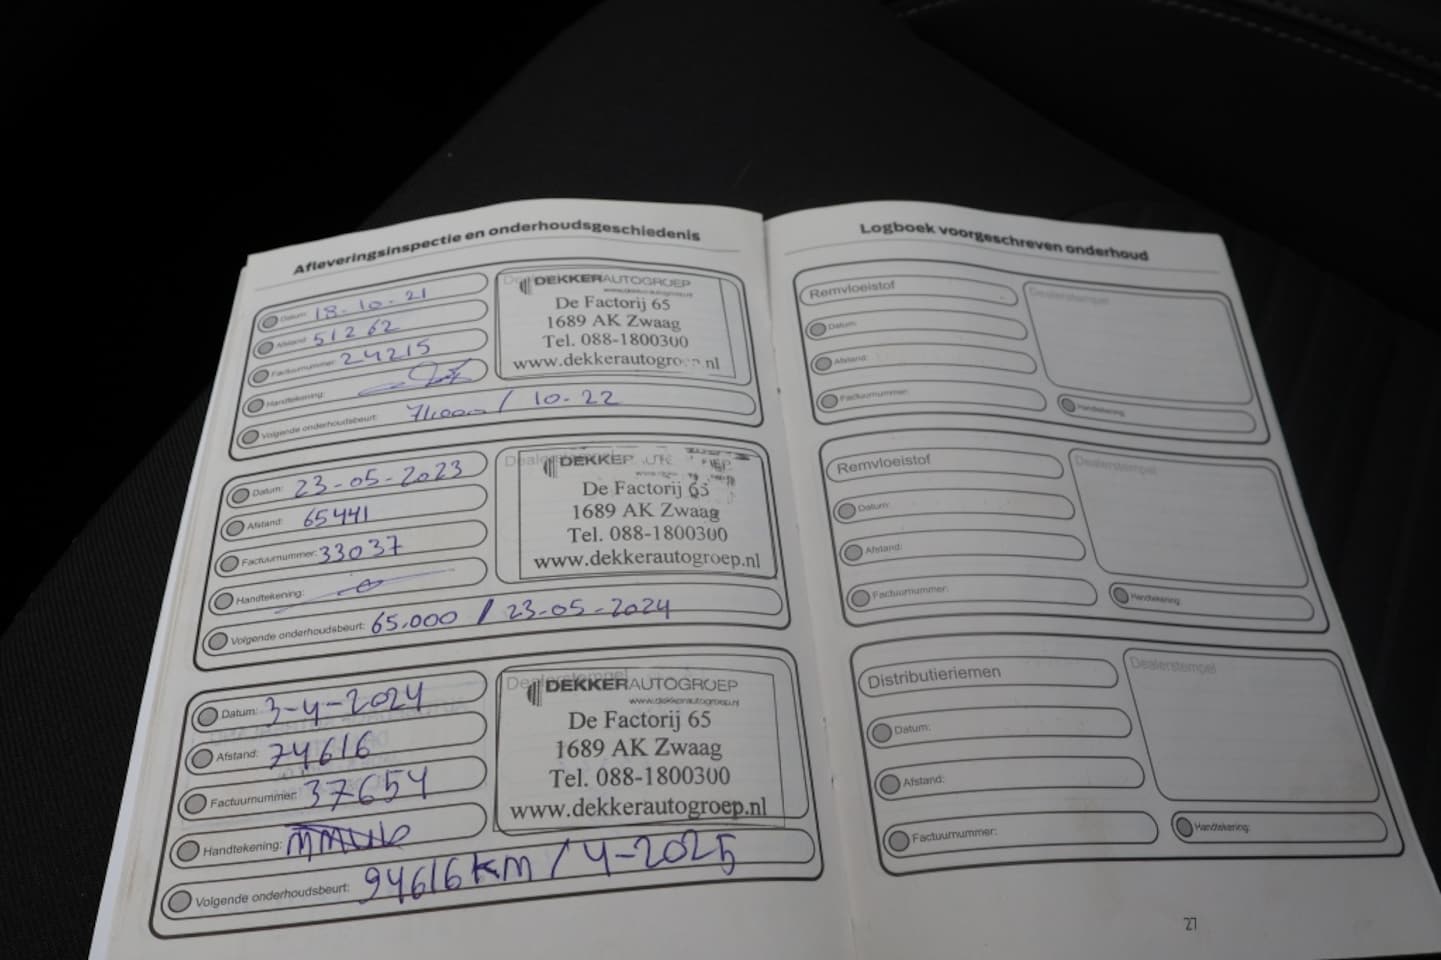 Afleveringsinspectie en onderhoudsgeschiedenis
Datum: 18-10-21
Afstand: 51262
Factuurnummer: 24215
Handtekening:
Volgende onderhoudsbeurt: / 10-22
DEKKERAUTOGROEP
www.dekkerautogroep.nl
De Factorij 65
1689 AK Zwaag
Tel. 088-1800300
www.dekkerautogroep.nl
Datum: 23-05-2023
Afstand: 65441
Factuurnummer: 33037
Handtekening:
Volgende onderhoudsbeurt: 65.000 / 23-05-2024
Dealerstempel
DEKKER
De Factorij 65
1689 AK Zwaag
Tel. 088-1800300
www.dekkerautogroep.nl
Datum: 3-4-2024
Afstand: 74616
Factuurnummer: 37654
Handtekening:
Volgende onderhoudsbeurt: 94616 KM / 4-2025
Dealerstempel
DEKKERAUTOGROEP
www.dekkerautogroep.nl
De Factorij 65
1689 AK Zwaag
Tel. 088-1800300
www.dekkerautogroep.nl
Logboek voorgeschreven onderhoud
Remvloeistof
Datum:
Afstand:
Factuurnummer:
Dealerstempel
Handtekening:
Remvloeistof
Datum:
Afstand:
Factuurnummer:
Dealerstempel
Handtekening:
Distributieriemen
Datum:
Afstand:
Factuurnummer:
Dealerstempel
Handtekening:
27